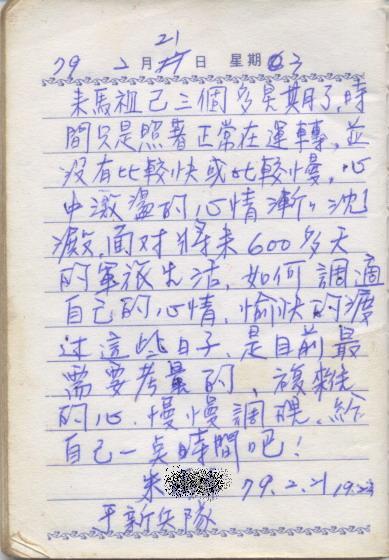 21
79 2月 日 星期 3
來馬祖己三個多星期了,時
間只是照著正常在運轉,並
沒有比較快或比較慢,心
中激盪的心情漸漸沈
澱,面对將來600多天
的軍旅生活,如何調適
自己的心情,愉快的度
过這些日子,是目前最
需要考量的、複雜
的心,慢慢調視,給
自己一点時間吧!
朱 79.2.21 19:22
平新兵隊